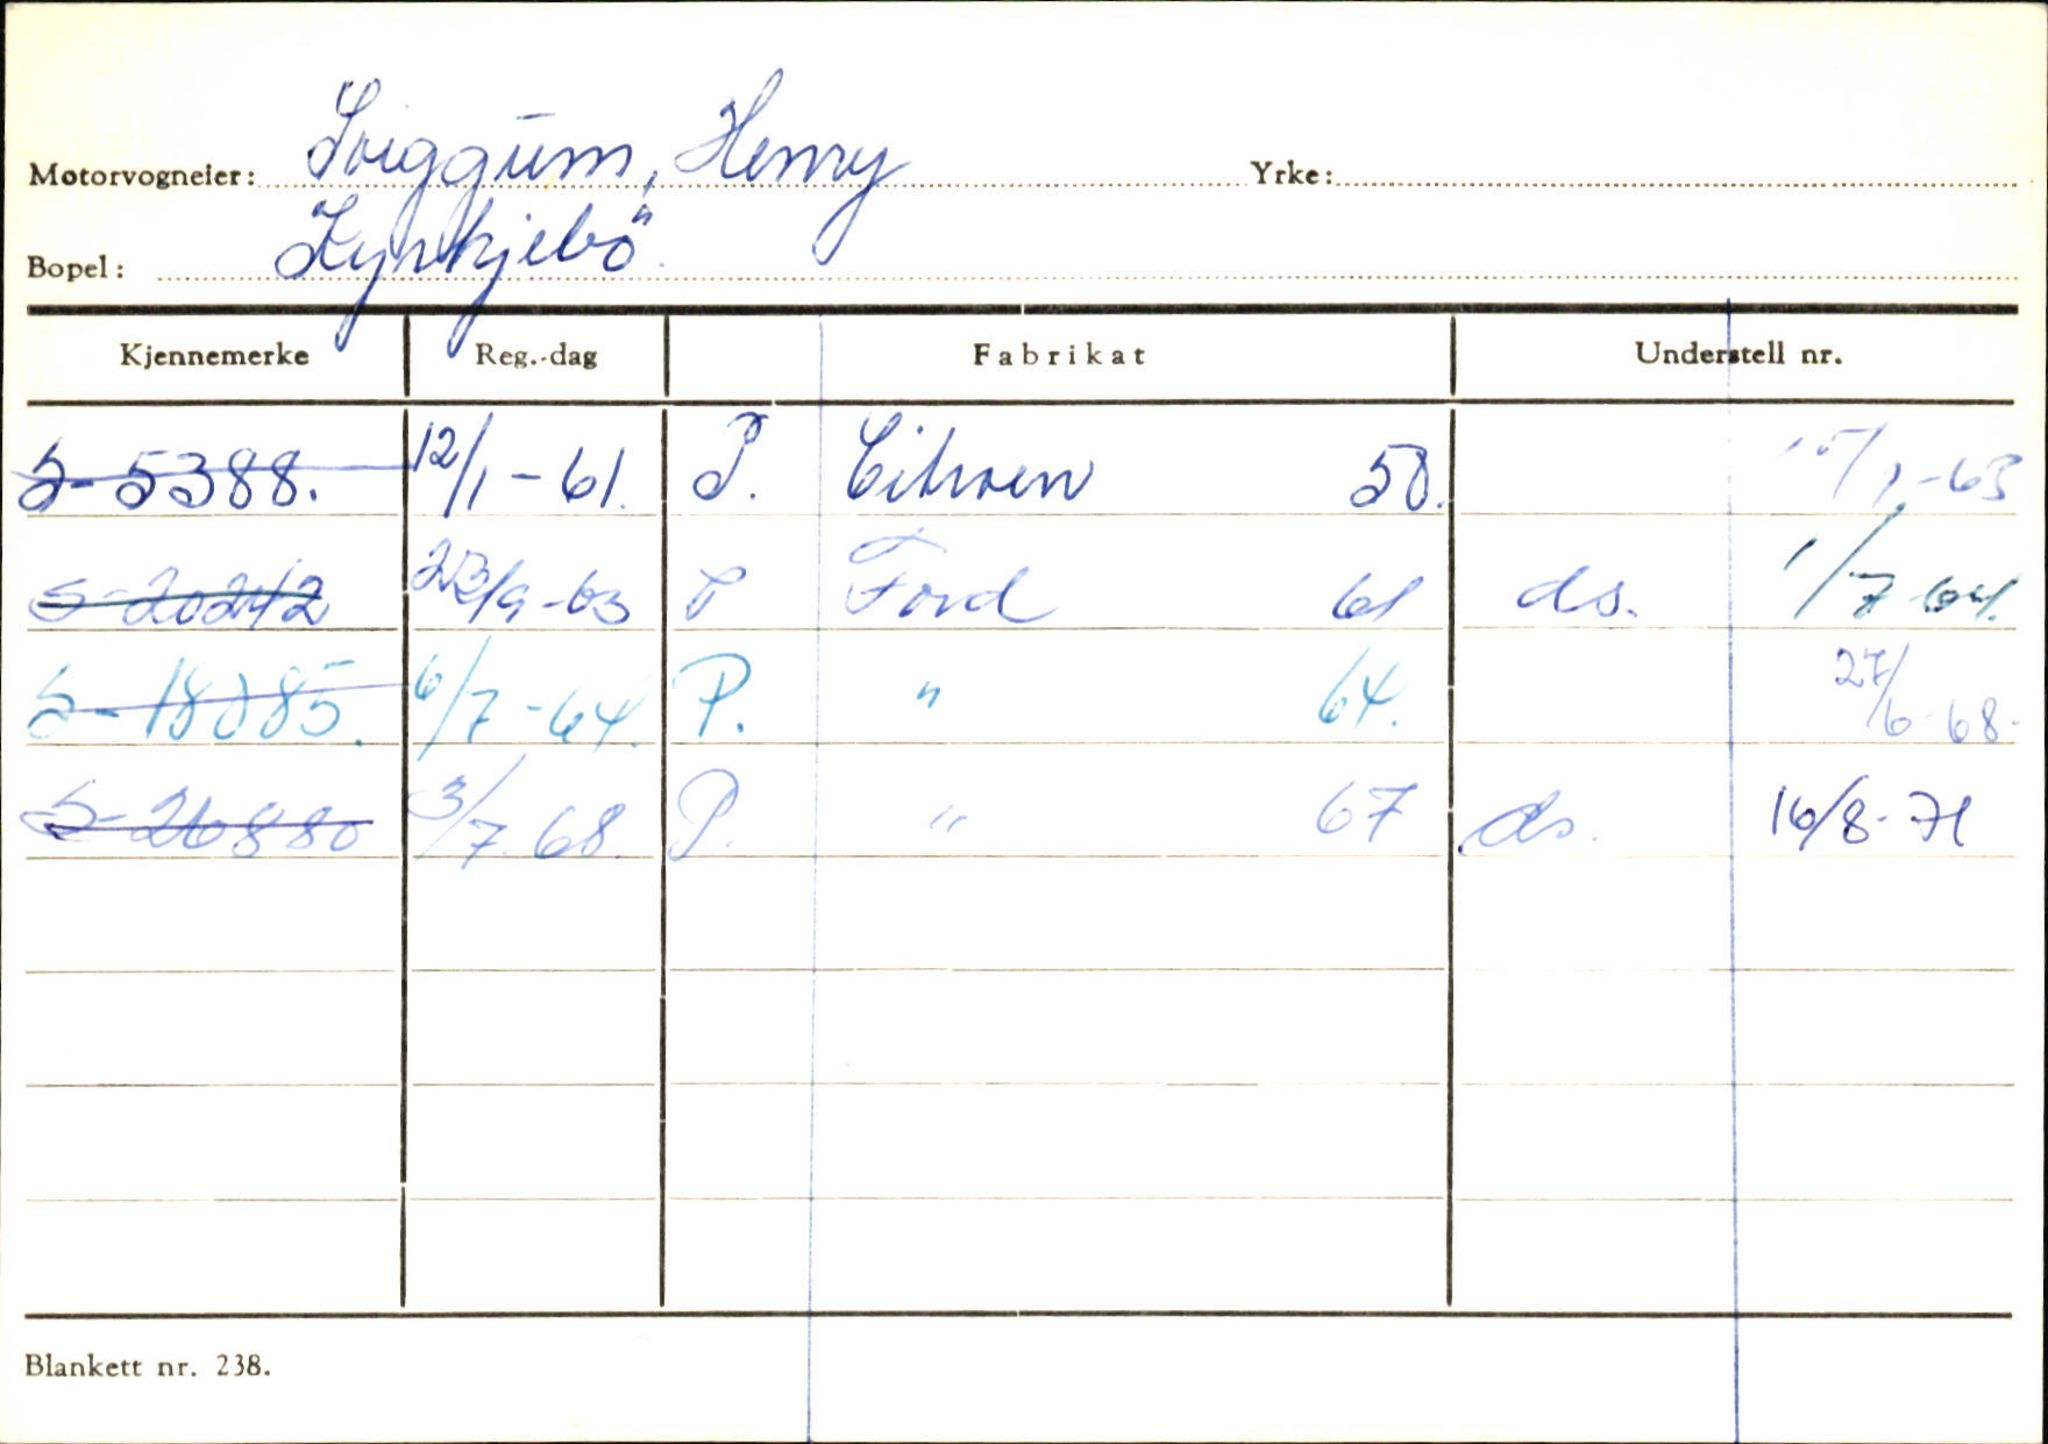 Motorvogneier: Sviggum, Henry Yrke:
Bopel: Kyrkjebö
Kjennemerke Reg.-dag Fabrikat Understell nr.
S-5388. 12/1-61. P. Citroen 50. 15/1-63
S-20242 23/9-63 P Ford 61 ds. 1/7-64.
S-18085. 6/7-64. P. " 64. 27/6-68-
S-26880 3/7-68. P. " 67 ds. 16/8-71
Blankett nr. 238.